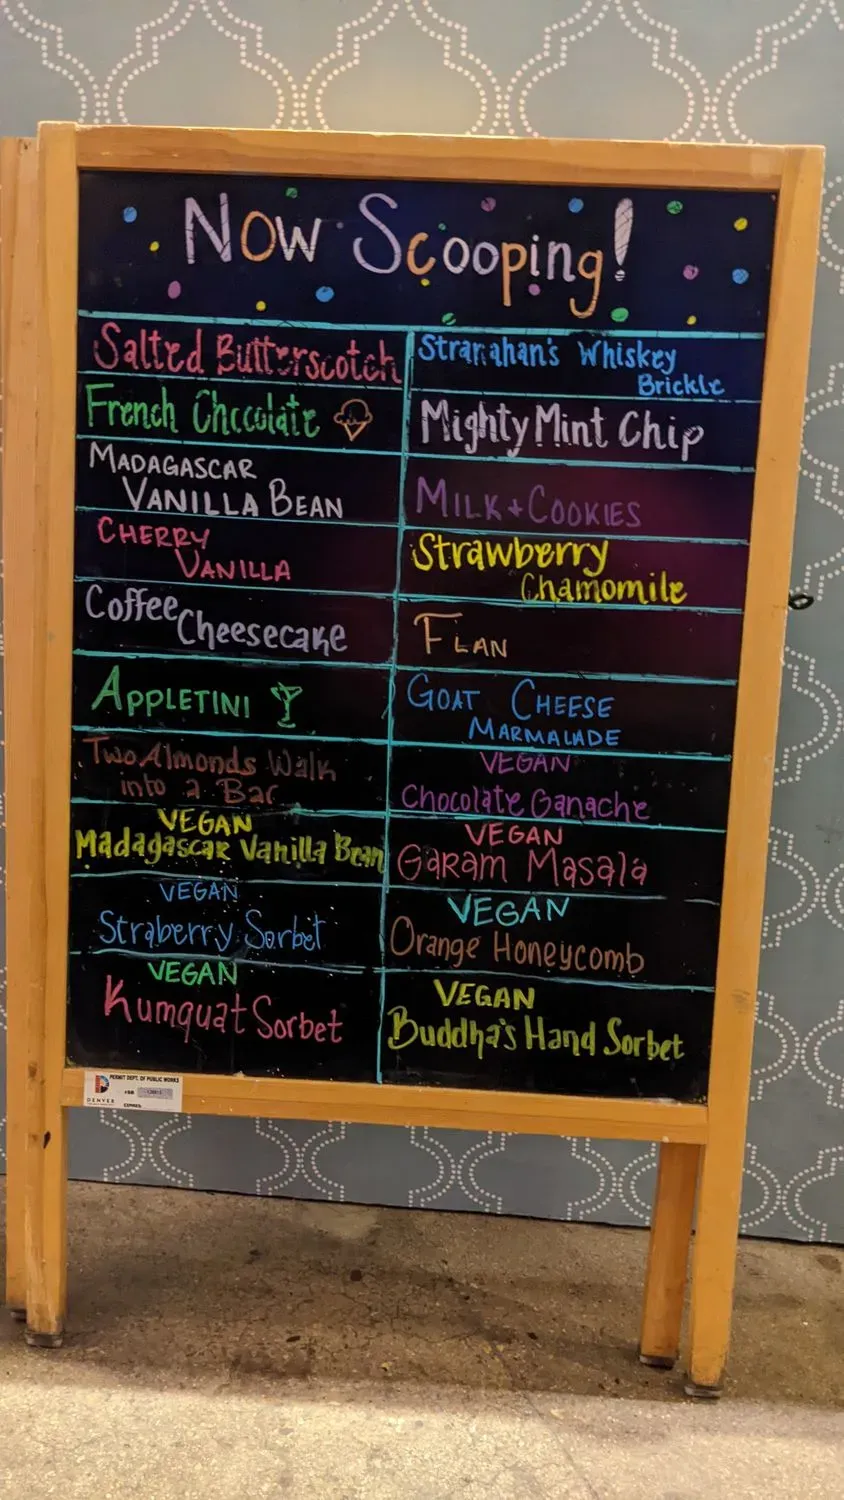 Now Scooping!
Salted Butterscotch
French Chocolate
MADAGASCAR
VANILLA BEAN
CHERRY
VANILLA
Coffee
Cheesecake
APPLETINI
Two Almonds Walk
into a Bar
VEGAN
Madagascar Vanilla Bean
VEGAN
Straberry Sorbet
VEGAN
Kumquat Sorbet
Stranahan's Whiskey
Brickle
Mighty Mint Chip
MILK + COOKIES
Strawberry
Chamomile
FLAN
GOAT CHEESE
MARMALADE
VEGAN
Chocolate Ganache
VEGAN
Garam Masala
VEGAN
Orange Honeycomb
VEGAN
Buddha's Hand Sorbet
PERMIT DEPT. OF PUBLIC WORKS
DENVER
EXPIRES: